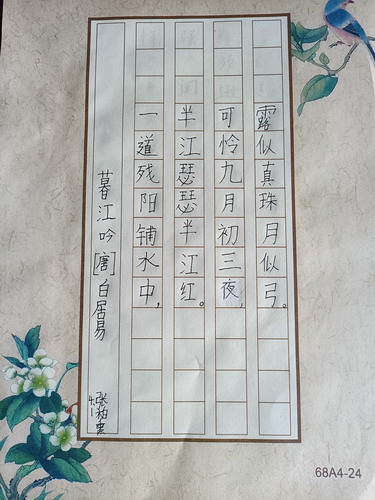 暮江吟[唐]白居易
4.1
一道残阳铺水中，
半江瑟瑟半江红。
可怜九月初三夜，
露似真珠月似弓。
68A4-24